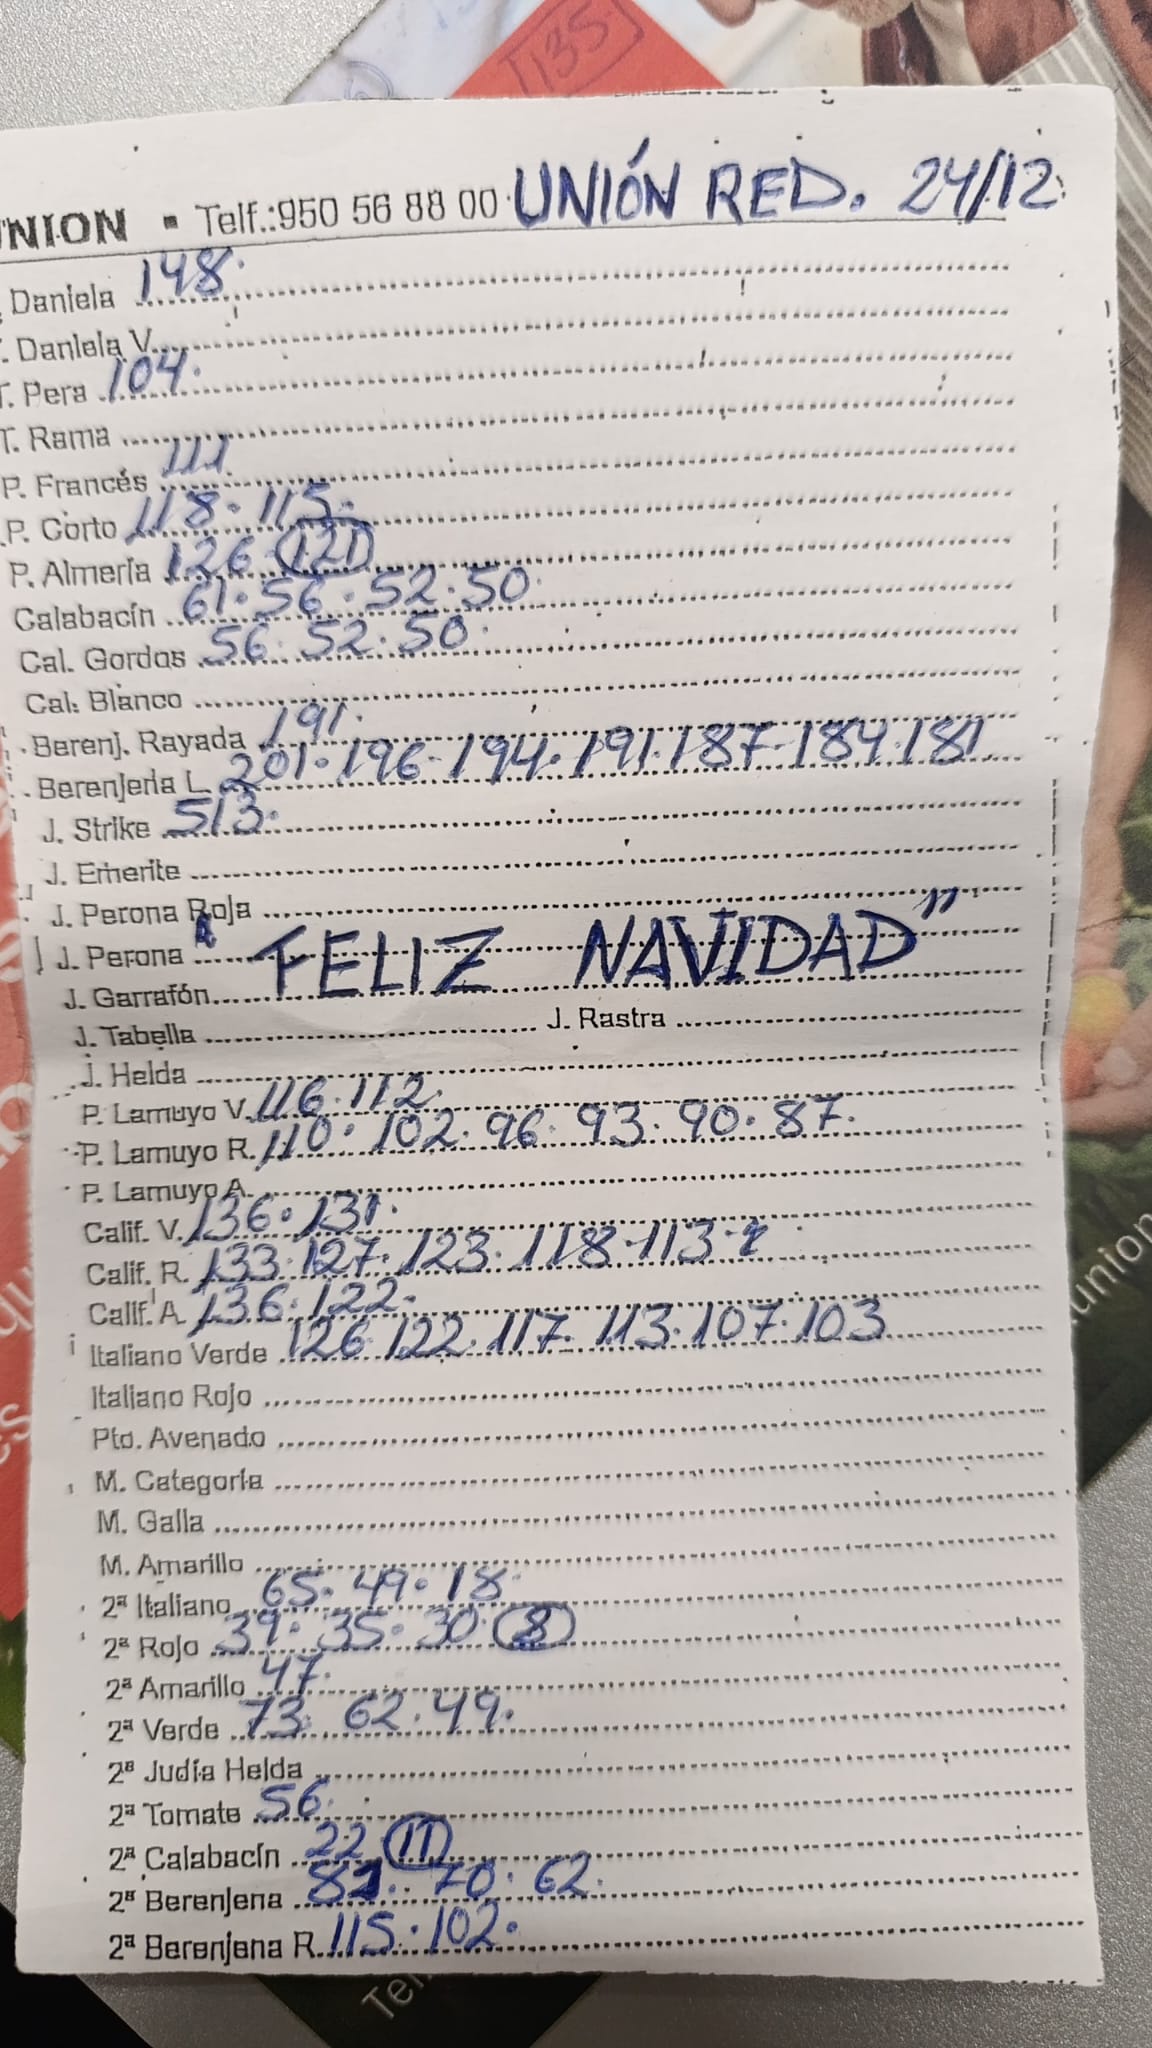 135
UNION ▪ Telf.:950 56 88 00 UNIÓN RED. 24/12
Daniela 148.
T. Daniela V.
T. Pera 104.
T. Rama
P. Francés 111
P. Corto 118. 115.
P. Almería 126 121
Calabacín 61. 56. 52. 50.
Cal. Gordos 56. 52. 50.
Cal. Blanco
Berenj. Rayada 191.
Berenjena L. 201. 196. 194. 191. 187. 184. 181
J. Strike 513.
J. Emerite
J. Perona Roja
J. Perona
" FELIZ NAVIDAD"
J. Garrafón
J. Tabella J. Rastra
J. Helda
P. Lamuyo V. 116. 112.
P. Lamuyo R. 110. 102. 96. 93. 90. 87.
P. Lamuyo A.
Calif. V. 136. 131.
Calif. R. 133. 127. 123. 118. 113.
Calif. A. 136. 122.
Italiano Verde 126 122. 117. 113. 107. 103
Italiano Rojo
Pto. Avenado
M. Categoría
M. Galla
M. Amarillo
2ª Italiano 65. 49. 18.
2ª Rojo 39. 35. 30. 8
2ª Amarillo 47.
2ª Verde 73. 62. 49.
2ª Judía Helda
2ª Tomate 56.
2ª Calabacín 22. 11
2ª Berenjena 70. 62.
2ª Berenjena R. 115. 102.